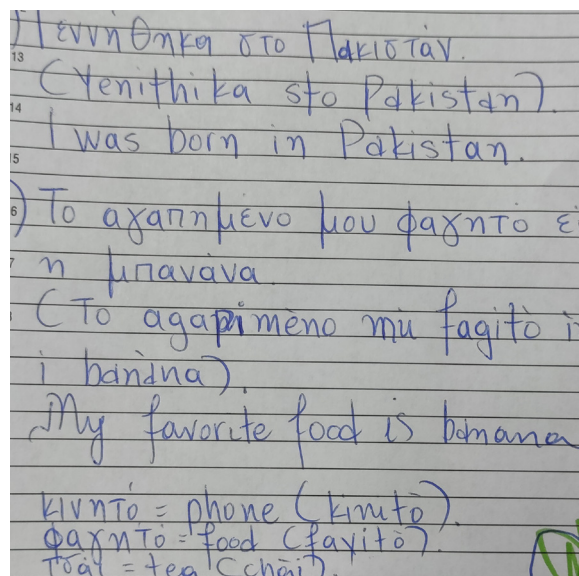 ) Γεννήθηκα στο Πακιστάν.
13
(Yenithika sto Pakistan).
14
I was born in Pakistan.
15
6) Το αγαπημένο μου φαγητό
η μπανάνα
(To agapimèno mu fagitò
i banàna).
My favorite food is banana
κινητό = phone (kinitò).
φαγητό = food (fayitò).
τσάι = tea (chài).